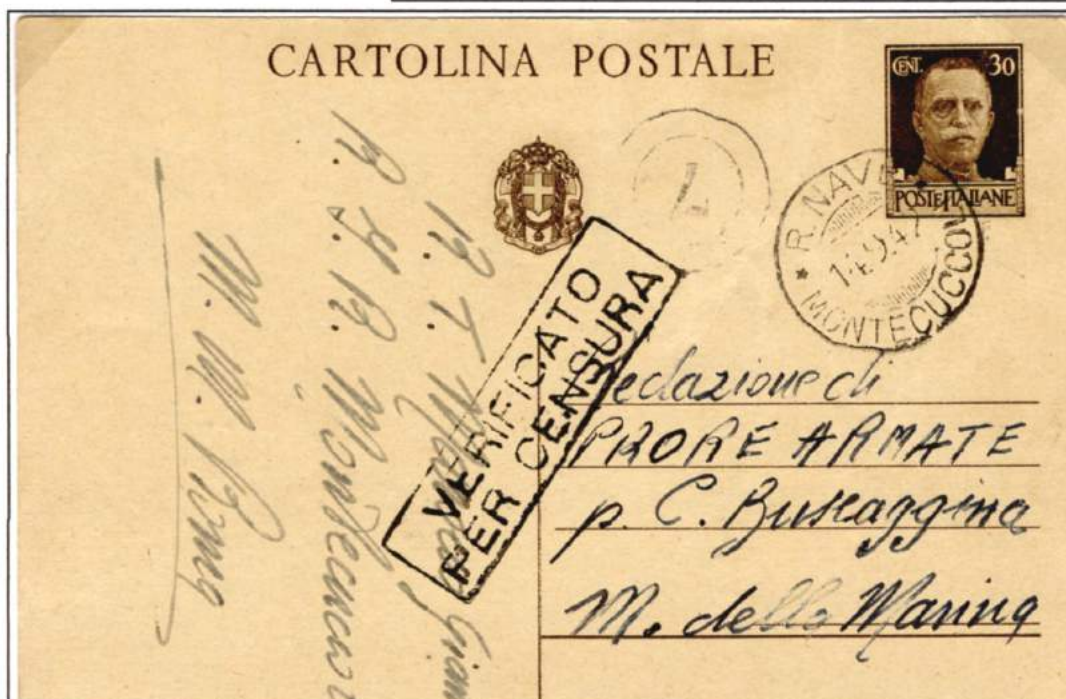 CARTOLINA POSTALE
CENT. 30
POSTE ITALIANE
R. NAVE
MONTECUCCOLI
VERIFICATO
PER CENSURA
Redazione di
PRORE ARMATE
p. C. Buscaggina
M. della Marina
R. T. Giann
R. N. R. Montecuccoli
M. M. Roma